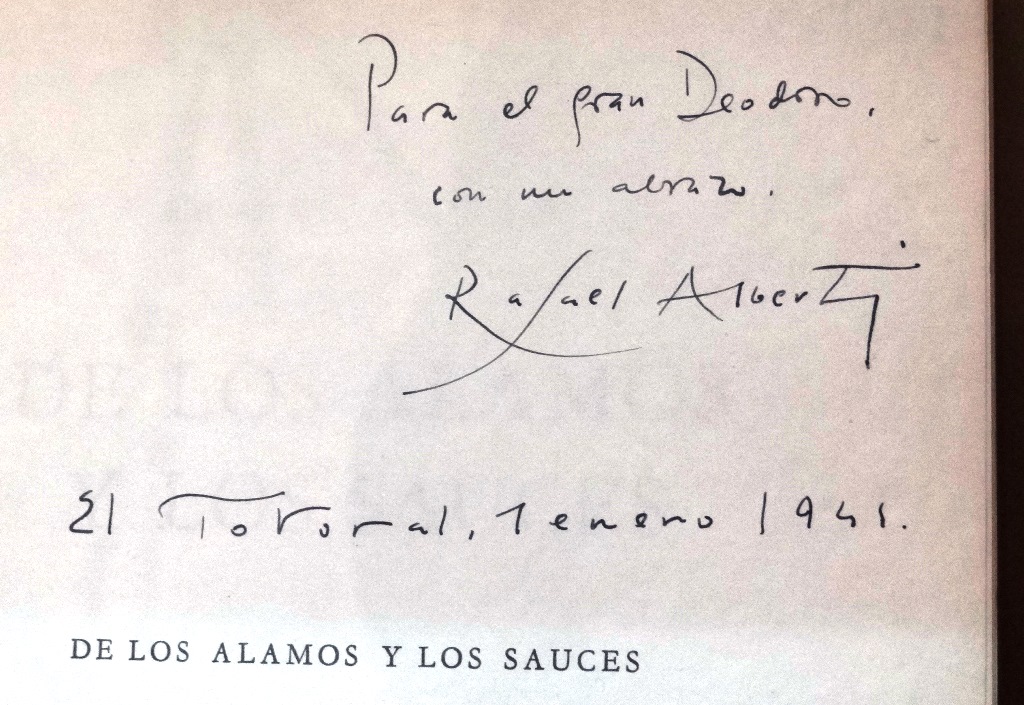 Para el gran Deodoro,
con un abrazo.
Rafael Alberti
El Totoral, 1 enero 1941.
DE LOS ALAMOS Y LOS SAUCES